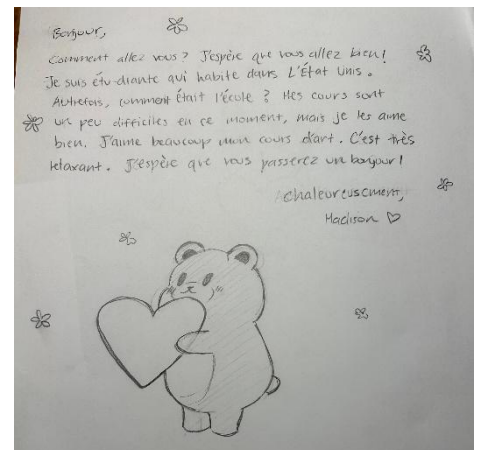 Bonjour,
Comment allez vous? J'espère que vous allez bien!
Je suis étudiante qui habite dans L'État Unis.
Autrefois, comment était l'école? Mes cours sont
un peu difficiles en ce moment, mais je les aime
bien. J'aime beaucoup mon cours d'art. C'est très
relaxant. J'espère que vous passerez un bonjour!
chaleureusement,
Madison